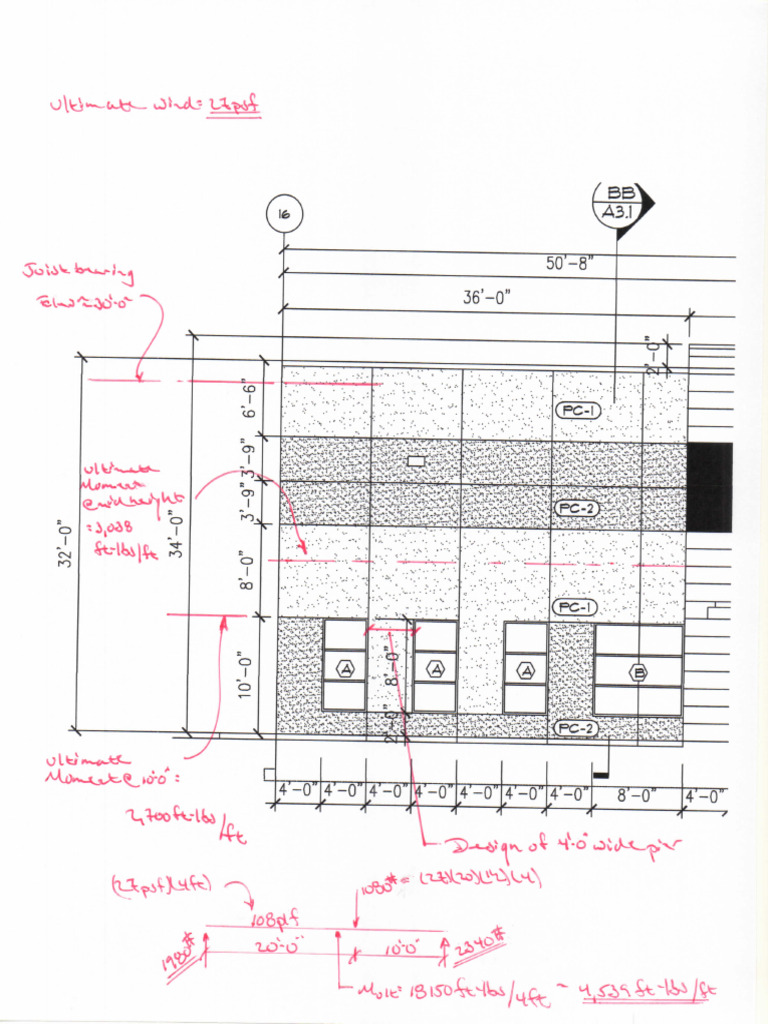 Ultimate wind = 27psf
16
BB
A3.1
50'-8"
36'-0"
Joist bearing
Elev ≈ 30'-0"
2'-0"
6'-6"
PC-1
3'-9"
3'-9"
PC-2
Ultimate
Moment
@ midheight
= 3,038
ft-lbs/ft
32'-0"
34'-0"
8'-0"
PC-1
10'-0"
A
A
A
B
8'-0"
2'-0"
PC-2
Ultimate
Moment @ 10'-0":
2,700 ft-lbs/ft
4'-0" 4'-0" 4'-0" 4'-0" 4'-0" 4'-0" 4'-0" 8'-0" 4'-0"
Design of 4'-0" wide pier
(27psf)(4ft)
1080# = (27)(20)(1/2)(4)
108plf
20'-0" 10'-0"
1980#
2340#
Mult = 18150 ft-lbs/4ft ~ 4,539 ft-lbs/ft